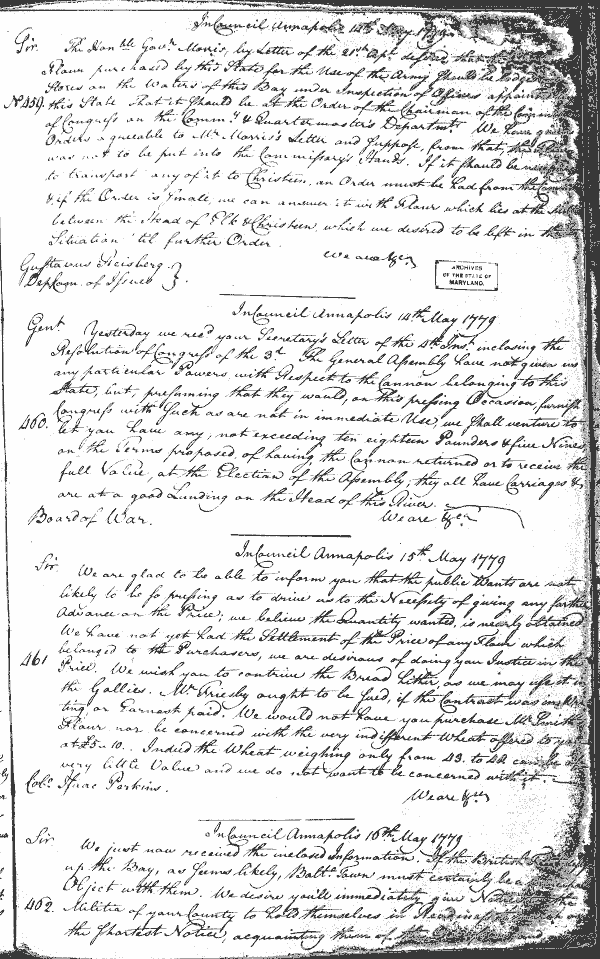 In Council Annapolis 14th May 1779
Sir. The Honble Govr. Morris, by Letter of the 21st Apl. desired that the
Flour purchased by this State for the Use of the Army should be lodged
Stores on the Waters of this Bay under Inspection of Officers appointed
No 459. this State that it should be at the Order of the Chairman of the
of Congress on the Commy. & Quartermaster's Departmts. We have given
Orders agreeable to Mr. Morris's Letter and suppose, from that, the
was not to be put into the Commissary's Hands. If it should be necessary
to transport any of it to Christeen, an Order must be had from the
& if the Order is finale, we can answer it with Flour which lies at the
between the Head of Elk & Christeen, which we desired to be left in that
Situation 'til further Order.
We are &ca
Gustavus Reisberg
Dep. Com. of Issues
ARCHIVES
OF THE STATE OF
MARYLAND.
In Council Annapolis 14th May 1779
Gent. Yesterday we recd your Secretary's Letter of the 4th Inst. inclosing the
Resolution of Congress of the 3d. The General Assembly have not given us
any particular Powers, with Respect to the Cannon belonging to this
State, but, presuming that they would, on this pressing Occasion, furnish
Congress with such as are not in immediate Use, we shall venture to
460. let you have any, not exceeding ten eighteen Pounders & five Nines
on the Terms proposed, of having the Cannon returned or to receive the
full Value, at the Election of the Assembly, they all have Carriages &
are at a good Landing on the Head of this River.
We are &ca
Board of War.
In Council Annapolis 15th May 1779
Sir. We are glad to be able to inform you that the public Wants are not
likely to be so pressing as to drive us to the Necessity of giving any farther
Advance on the Price; we believe the Quantity wanted, is nearly obtained
We have not yet had the Settlement of the Price of any Flour which
belonged to the Purchasers, we are desirous of doing you Justice in the
461 Price. We wish you to contrive the Bread hither, as we may use it in
the Gallies. Mr. Friesby ought to be sued, if the Contract was in Wri-
ting, or Earnest paid. We would not have you purchase Mr. Smith's
Flour nor be concerned with the very indifferent Wheat offered to you
at £5..10.. Indeed the Wheat weighing only from 43. to 44 can be of
very little Value and we do not want to be concerned with it.
We are &ca
Colo. Isaac Perkins.
In Council Annapolis 16th May 1779
Sir We just now received the inclosed Information. If the British
up the Bay, as seems likely, Balt. Town must certainly be a
Object with them. We desire you'll immediately give Notice to the
462. Militia of your County to hold themselves in Readiness on
the shortest Notice, acquainting them of the